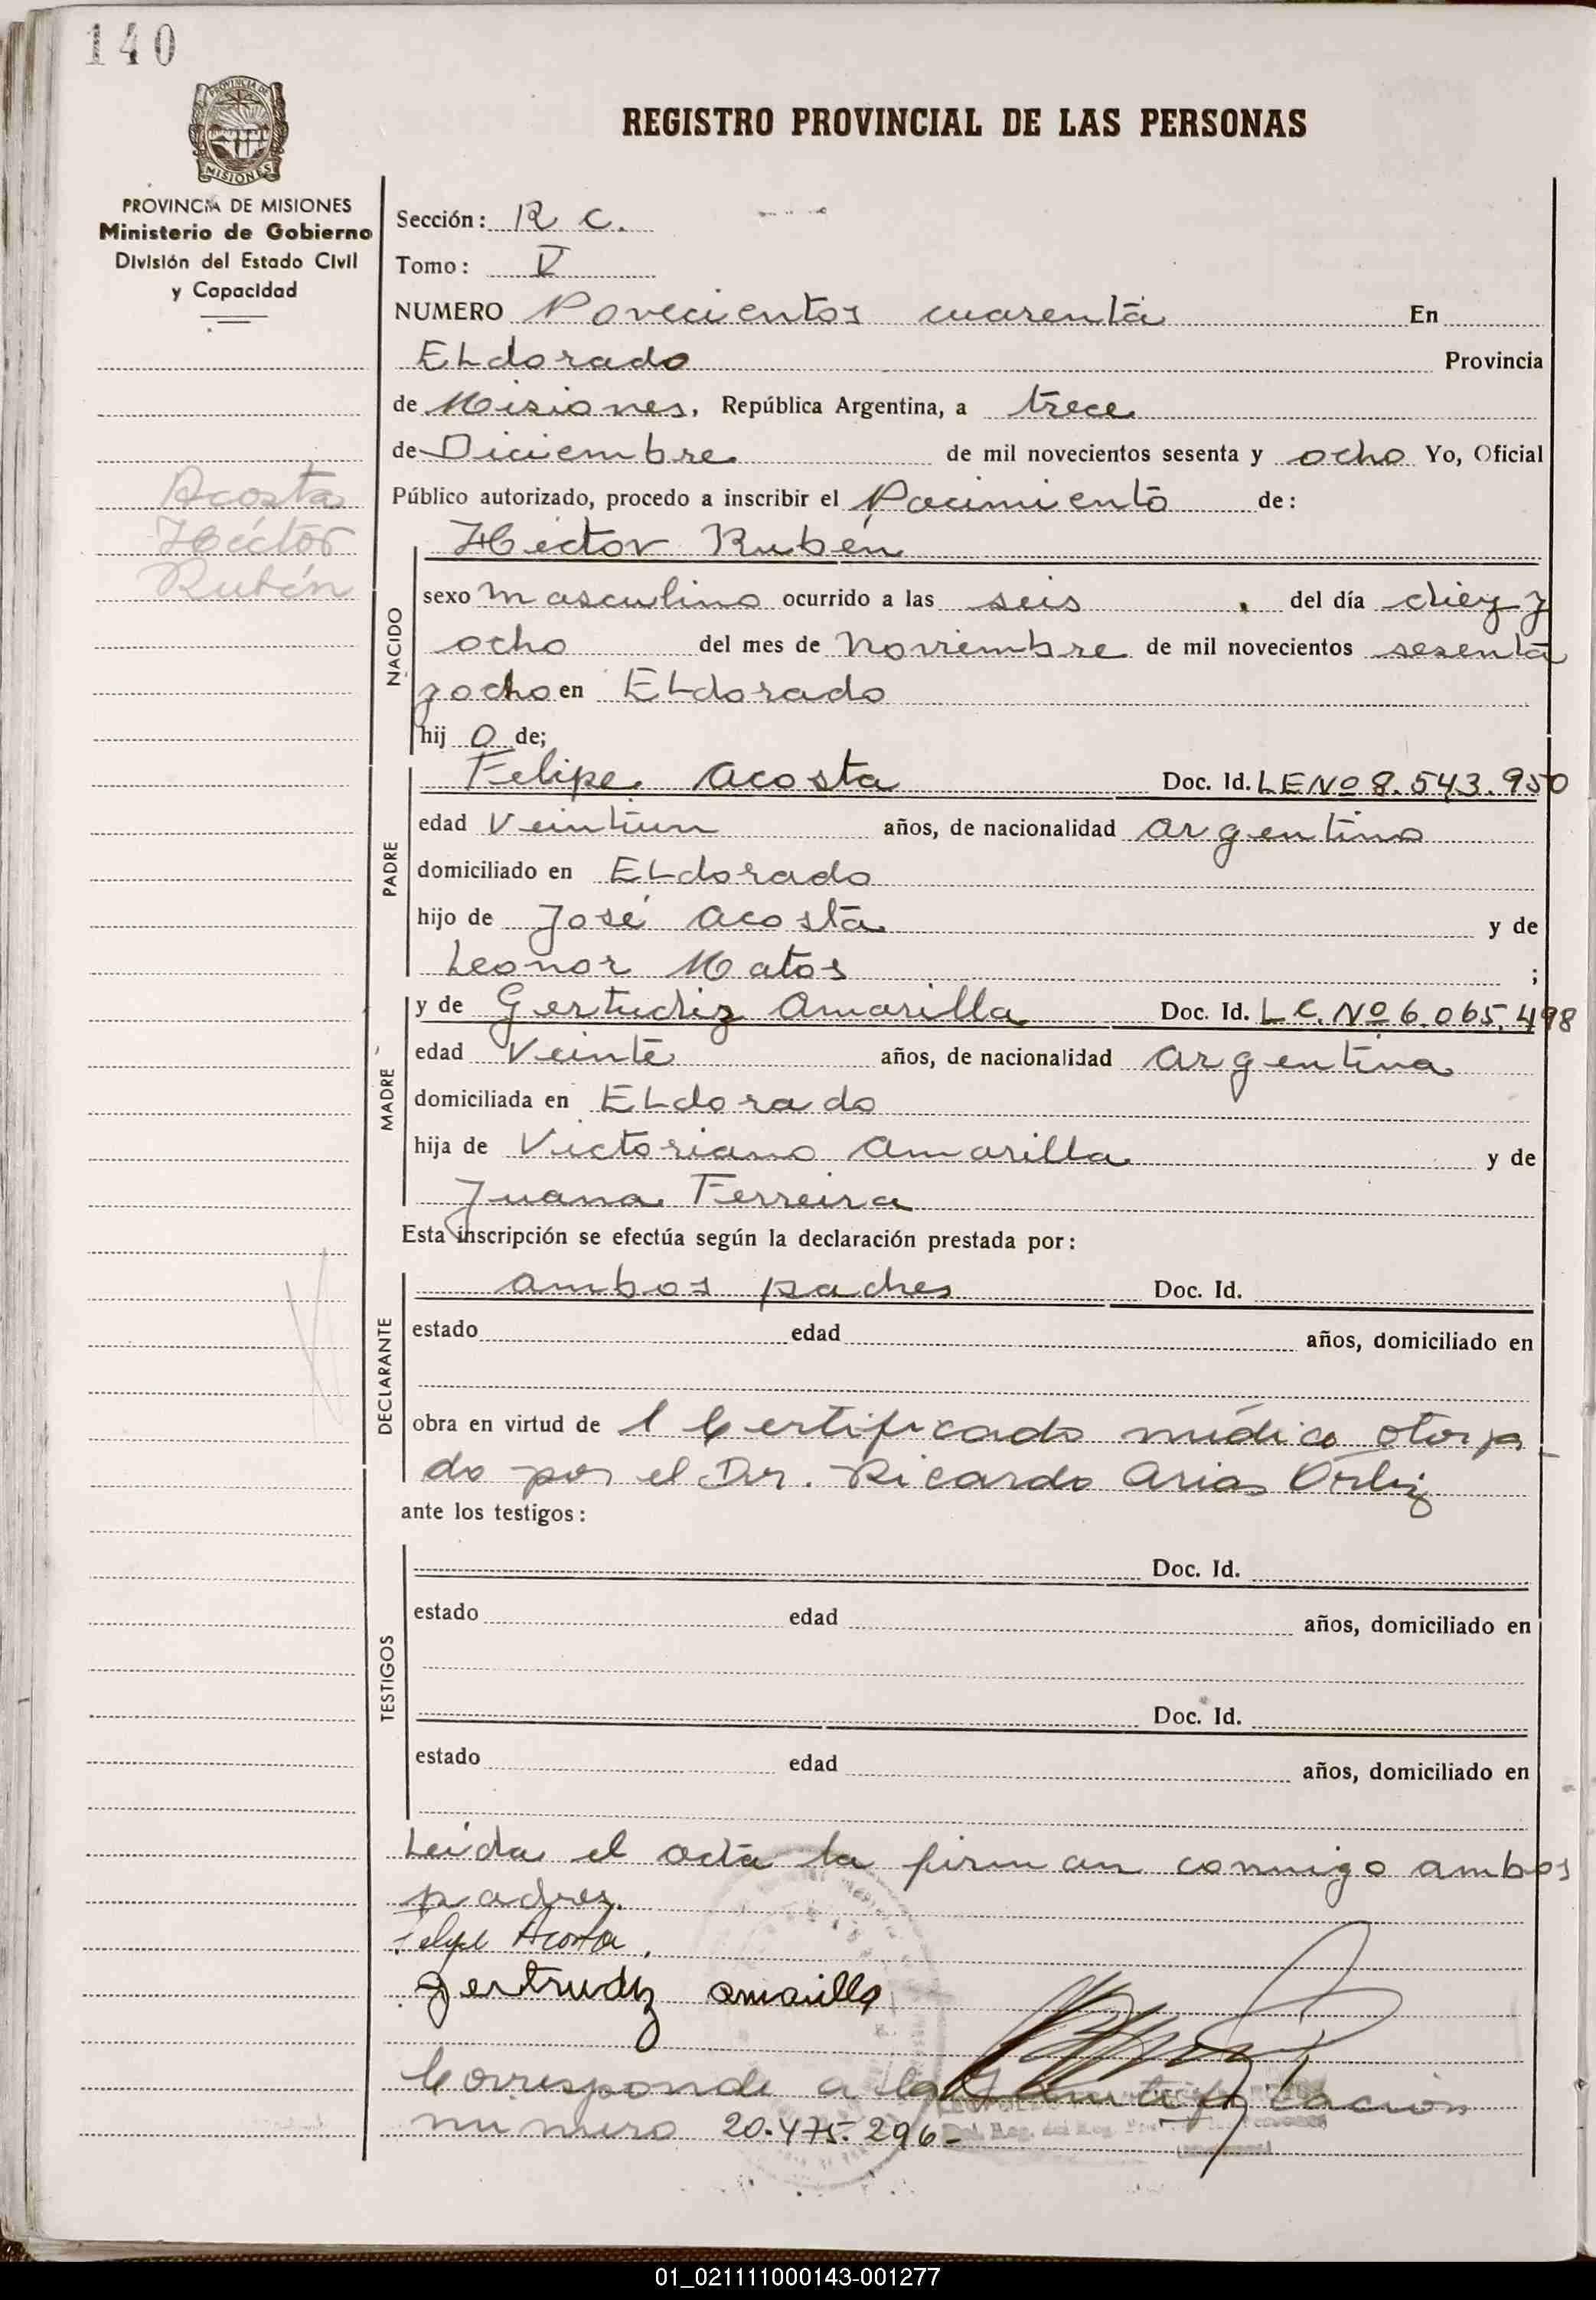 140
PROVINCIA DE MISIONES
MISIONES
PROVINCIA DE MISIONES
Ministerio de Gobierno
División del Estado Civil
y Capacidad
REGISTRO PROVINCIAL DE LAS PERSONAS
Sección: R C.
Tomo: V
NUMERO Novecientos cuarenta En
ELdorado Provincia
de Misiones, República Argentina, a trece
de Diciembre de mil novecientos sesenta y ocho Yo, Oficial
Público autorizado, procedo a inscribir el Nacimiento de:
Acosta
Héctor
Rubén
Héctor Rubén
NACIDO
sexo masculino ocurrido a las seis del día diez y
ocho del mes de Noviembre de mil novecientos sesenta
y ocho en ELdorado
hij o de;
PADRE
Felipe Acosta Doc. Id. LE Nº 8.543.950
edad Veintiun años, de nacionalidad argentino
domiciliado en ELdorado
hijo de José Acosta y de
Leonor Matos ;
MADRE
y de Gertudiz Amarilla Doc. Id. L C. Nº 6.065.498
edad Veinte años, de nacionalidad argentina
domiciliada en ELdorado
hija de Victoriano Amarilla y de
Juana Ferreira
Esta inscripción se efectúa según la declaración prestada por:
DECLARANTE
ambos padres Doc. Id.
estado edad años, domiciliado en
obra en virtud de 1 Certificado médico otorga
do por el Dr. Ricardo Arias Ortiz
ante los testigos:
TESTIGOS
Doc. Id.
estado edad años, domiciliado en
Doc. Id.
estado edad años, domiciliado en
Leída el acta la firman conmigo ambos
padres.
Felipe Acosta.
Gertrudiz Amarilla
Corresponde a la Identificación
número 20.475.296-
01_021111000143-001277